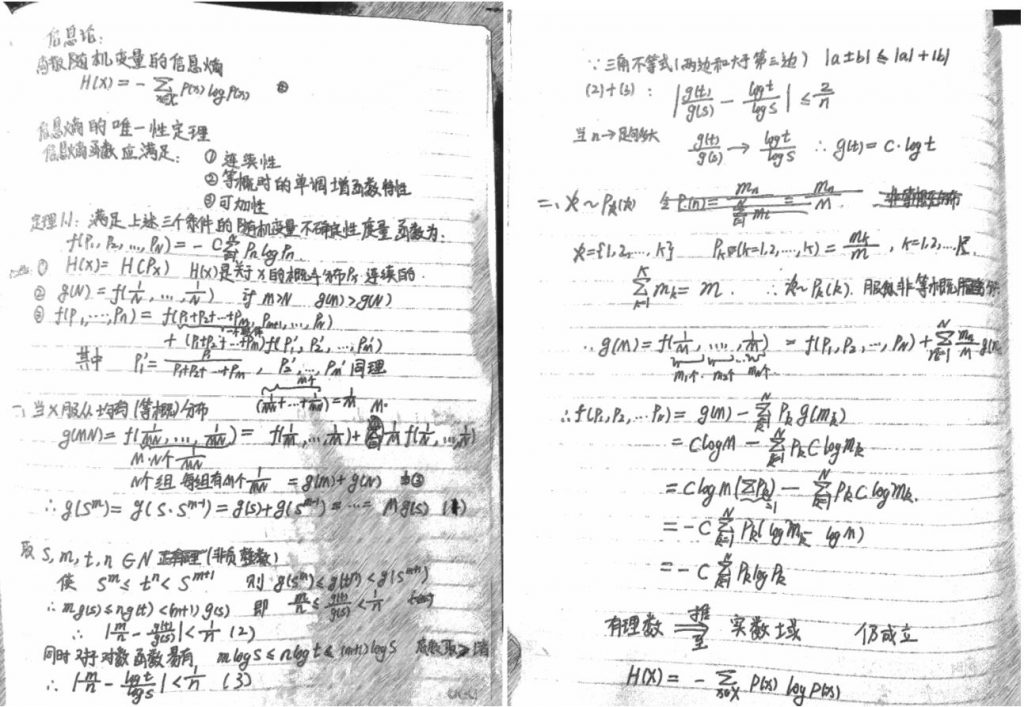 信息论:
离散随机变量的信息熵
H(X) = - Σ_{x∈X} P(x) log P(x)
信息熵的唯一性定理
信息熵函数应满足: ① 连续性
② 等概时的单调增函数特性
③ 可加性
定理1.1: 满足上述三个条件的随机变量不确定性度量函数为:
f(P₁, P₂, ..., P_N) = - C Σ Pₙ log Pₙ
① H(X) = H(P_X) H(X)是关于X的概率分布P_X连续的.
② g(N) = f(1/N, ..., 1/N) if M>N g(M)>g(N)
③ f(P₁, ..., P_N) = f(P₁+P₂+...+P_m, P_{m+1}, ..., P_N)
+ (P₁+P₂+...+P_m) f(P₁', P₂', ..., P_m')
其中 P₁' = P₁/(P₁+P₂+...+P_m), P₂', ..., P_m' 同理
M个
(1/MN+...+1/MN) = 1/N
一、当X服从均匀(等概)分布
g(MN) = f(1/MN, ..., 1/MN) = f(1/M, ..., 1/M) + 1/M f(1/N, ..., 1/N)
M·N个 1/MN
N个组 每组有M个 1/MN = g(M) + g(N) 由③
∴ g(S^m) = g(S·S^{m-1}) = g(S)+g(S^{m-1}) = ... = Mg(S) (1)
取 S, m, t, n ∈ N (非负整数)
使 S^m ≤ t^n < S^{m+1} 则 g(S^m) ≤ g(t^n) < g(S^{m+1})
∴ mg(s) ≤ ng(t) < (m+1)g(s) 即 m/n ≤ g(t)/g(s) < 1/n
∴ |m/n - g(t)/g(s)| < 1/n (2)
同时对于对数函数易有 m log S ≤ n log t ≤ (m+1) log S
∴ |m/n - log t/log s| < 1/n (3)
∵ 三角不等式(两边和大于第三边) |a±b| ≤ |a|+|b|
(2)+(3): |g(t)/g(s) - log t/log s| ≤ 2/n
当 n→足够大 g(t)/g(s) → log t/log s ∴ g(t) = C·log t
二、X ~ P_X(x)
X={1,2,...,K} P_X(k=1,2,...,k) = m_k/m, k=1,2,...K.
Σ_{k=1}^{K} m_k = m. ∴ X~P_k(k). 服从非等概
∴ g(M) = f(1/M, ..., 1/M) = f(P₁, P₂, ..., P_N) + Σ_{n=1}^{N} m_n/M g(m
m₁个. m₂个 m_n个.
∴ f(P₁, P₂, ... P_N) = g(m) - Σ_{k=1}^{N} P_k g(m_k)
= C log M - Σ_{k=1}^{N} P_k C log m_k
= C log m (ΣP_k) - Σ_{k=1}^{N} P_k C log m_k.
=1
= - C Σ_{k=1}^{N} P_k (log m_k - log m)
= - C Σ_{k=1}^{N} P_k log P_k
有理数 ⟹ 推至 实数域 仍成立
H(X) = - Σ_{x∈X} P(x) log P(x)